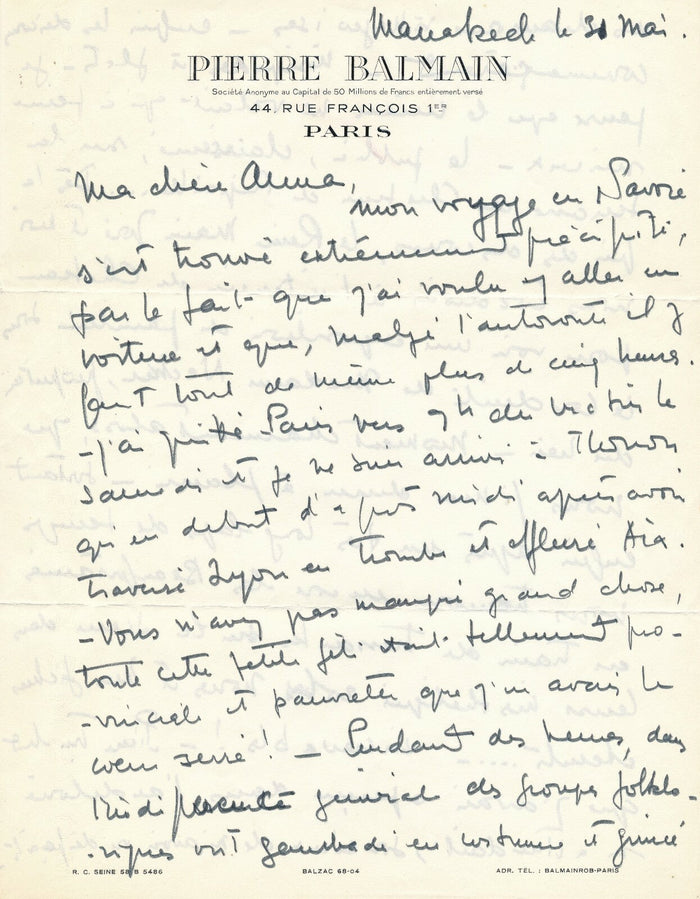 Marrakech le 31 Mai.
PIERRE BALMAIN
Société Anonyme au Capital de 50 Millions de Francs entièrement versé
44, RUE FRANÇOIS 1ER
PARIS
Ma chère Anna,
mon voyage en Savoie
s'est trouvé extrêmement précipité,
par le fait que j'ai voulu y aller en
voiture et que, malgré l'autoroute il y
faut tout de même plus de cinq heures.
- J'ai quitté Paris vers 7h du matin le
samedi et je ne suis arrivé à Thonon
qu'en début d'après midi après avoir
traversé Lyon en trombe et effleuré Aix.
- Vous n'avez pas manqué grand chose,
toute cette petite fête était tellement pro-
-vinciale et pauvrette que j'en avais le
coeur serré ! - Pendant des heures, dans
l'indifférence générale des groupes folklo-
-riques ont gambadé en costume et grincé
R. C. SEINE 58 B 5486
BALZAC 68-04
ADR. TÉL. : BALMAINROB-PARIS